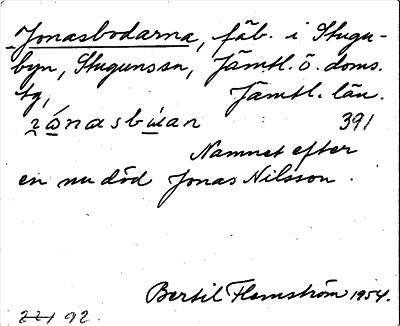 Jonasbodarna, fäb. i Stugu-
byn, Stugunssn, Jämtl. ö. doms.
tg, Jämtl. län.
391
Namnet efter
en nu död Jonas Nilsson.
Bertil Flemström 1954.
92